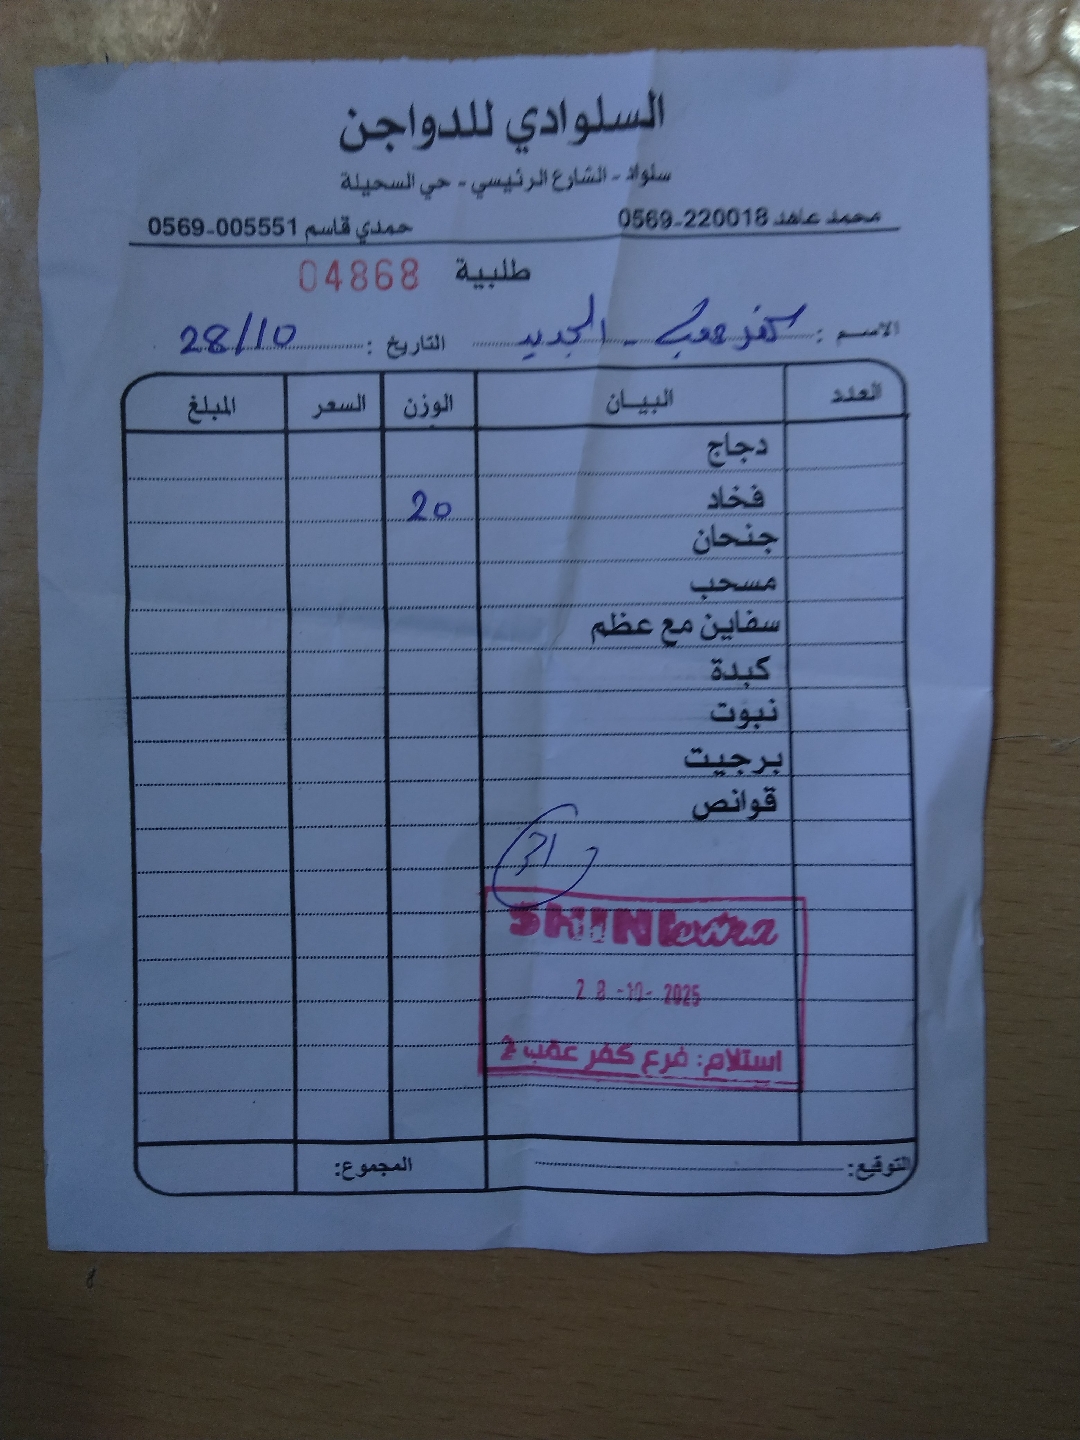 السلوادي للدواجن
سلواد - الشارع الرئيسي - حي السحيلة
محمد عاهد 0569-220018 حمدي قاسم 0569-005551
طلبية 04868
الاسم : كفر عقب - الجديد التاريخ : 28/10
العدد البيـــان الوزن السعر المبلغ
دجاج
فخاد 20
جنحان
مسحب
سفاين مع عظم
كبدة
نبوت
برجيت
قوانص
SHINI
28-10-2025
استلام: فرع كفر عقب 2
التوقيع: المجموع: